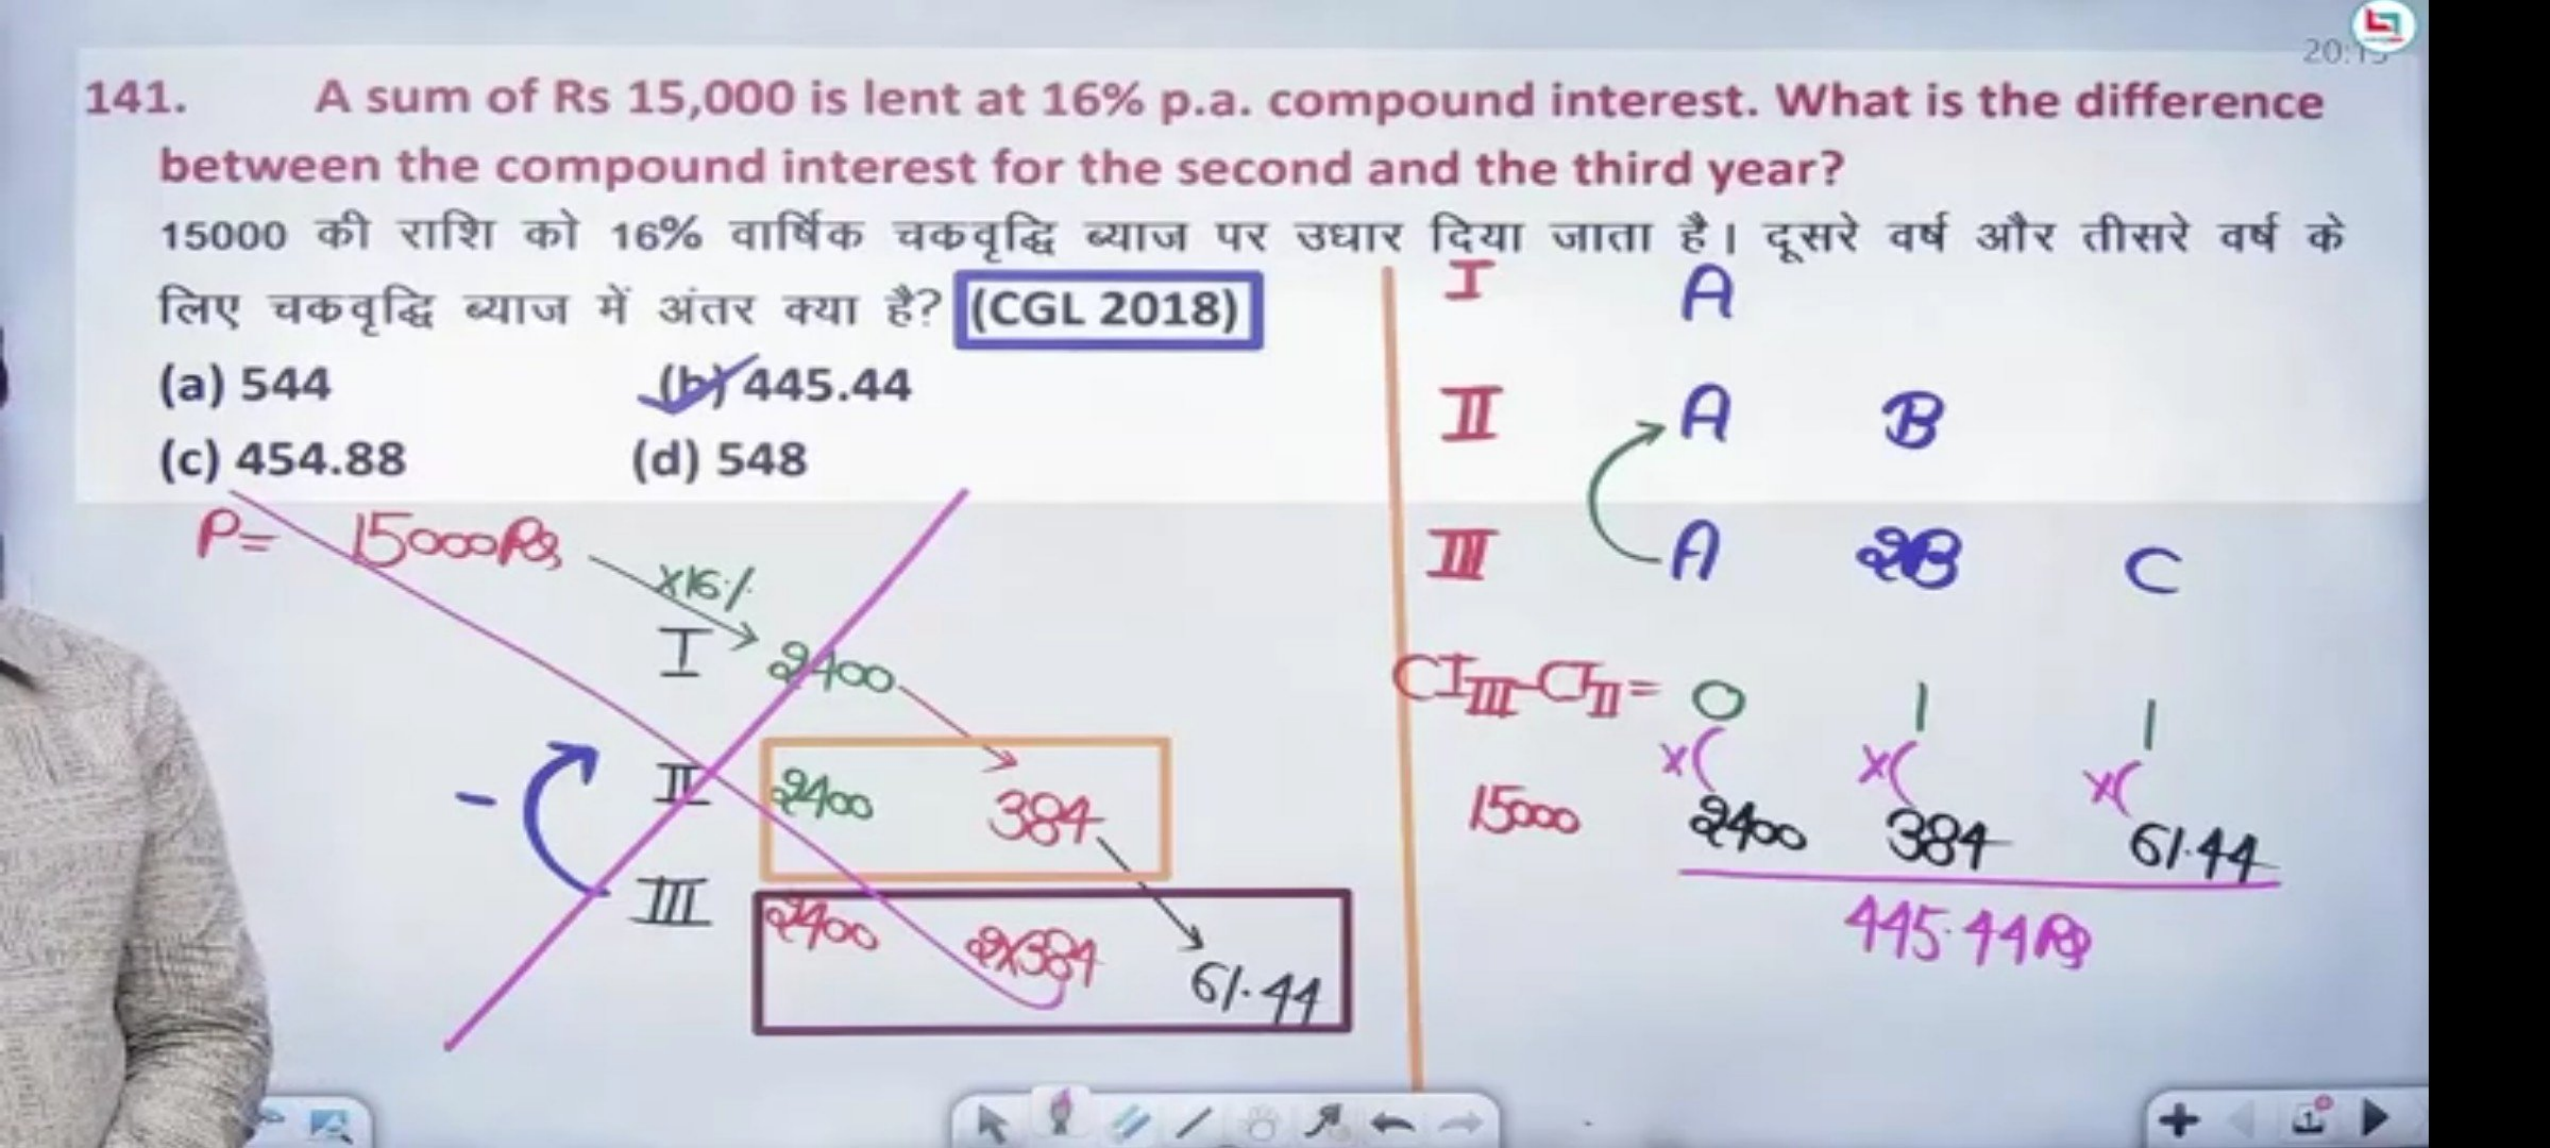 20:15
141. A sum of Rs 15,000 is lent at 16% p.a. compound interest. What is the difference
between the compound interest for the second and the third year?
15000 की राशि को 16% वार्षिक चकवृद्धि ब्याज पर उधार दिया जाता है। दूसरे वर्ष और तीसरे वर्ष के
लिए चकवृद्धि ब्याज में अंतर क्या है? (CGL 2018)
(a) 544 (b) 445.44
(c) 454.88 (d) 548
P= 15000Rs
×16%
I 2400
II 2400 384
III 2400 2×384 61.44
-
I A
II A B
III A 2B C
CI III - CI II = 0 1 1
×( ×( ×(
15000 2400 384 61.44
445.44Rs